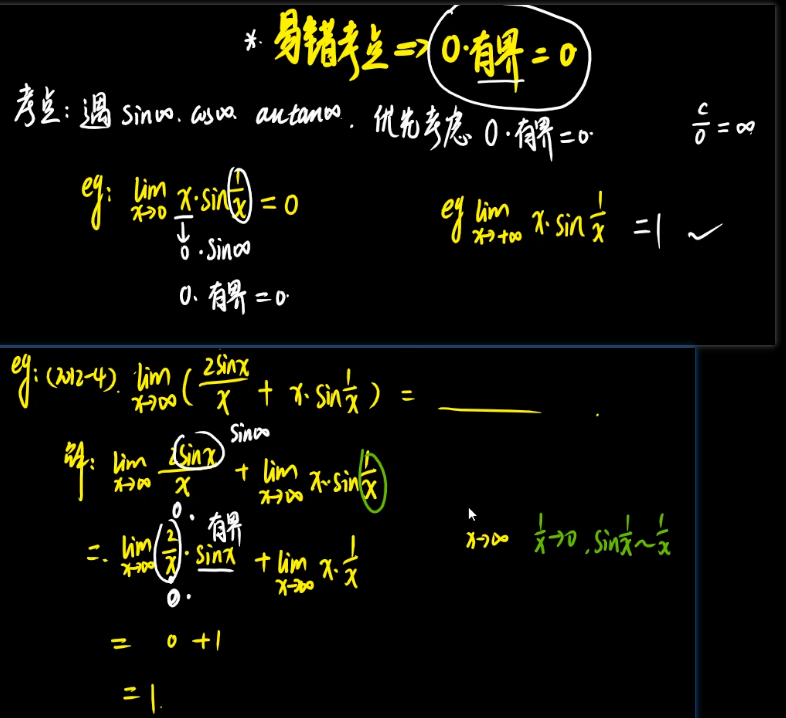 *. 易错考点 => 0·有界 = 0
考点: 遇 sin∞. cos∞. arctan∞. 优先考虑 0·有界=0.
c/0 = ∞
eg: lim x→0 x·sin 1/x = 0
↓
0·sin∞
0. 有界=0.
eg lim x→+∞ x·sin 1/x = 1 ✓
eg: (2012-4). lim x→∞ ( 2sinx/x + x·sin 1/x ) = ______ .
sin∞
解: lim x→∞ 2sinx/x + lim x→∞ x·sin 1/x
0. 有界
=. lim x→∞ (2/x)·sinx + lim x→∞ x·1/x
0.
x→∞ 1/x→0, sin 1/x ~ 1/x
= 0 + 1
= 1.